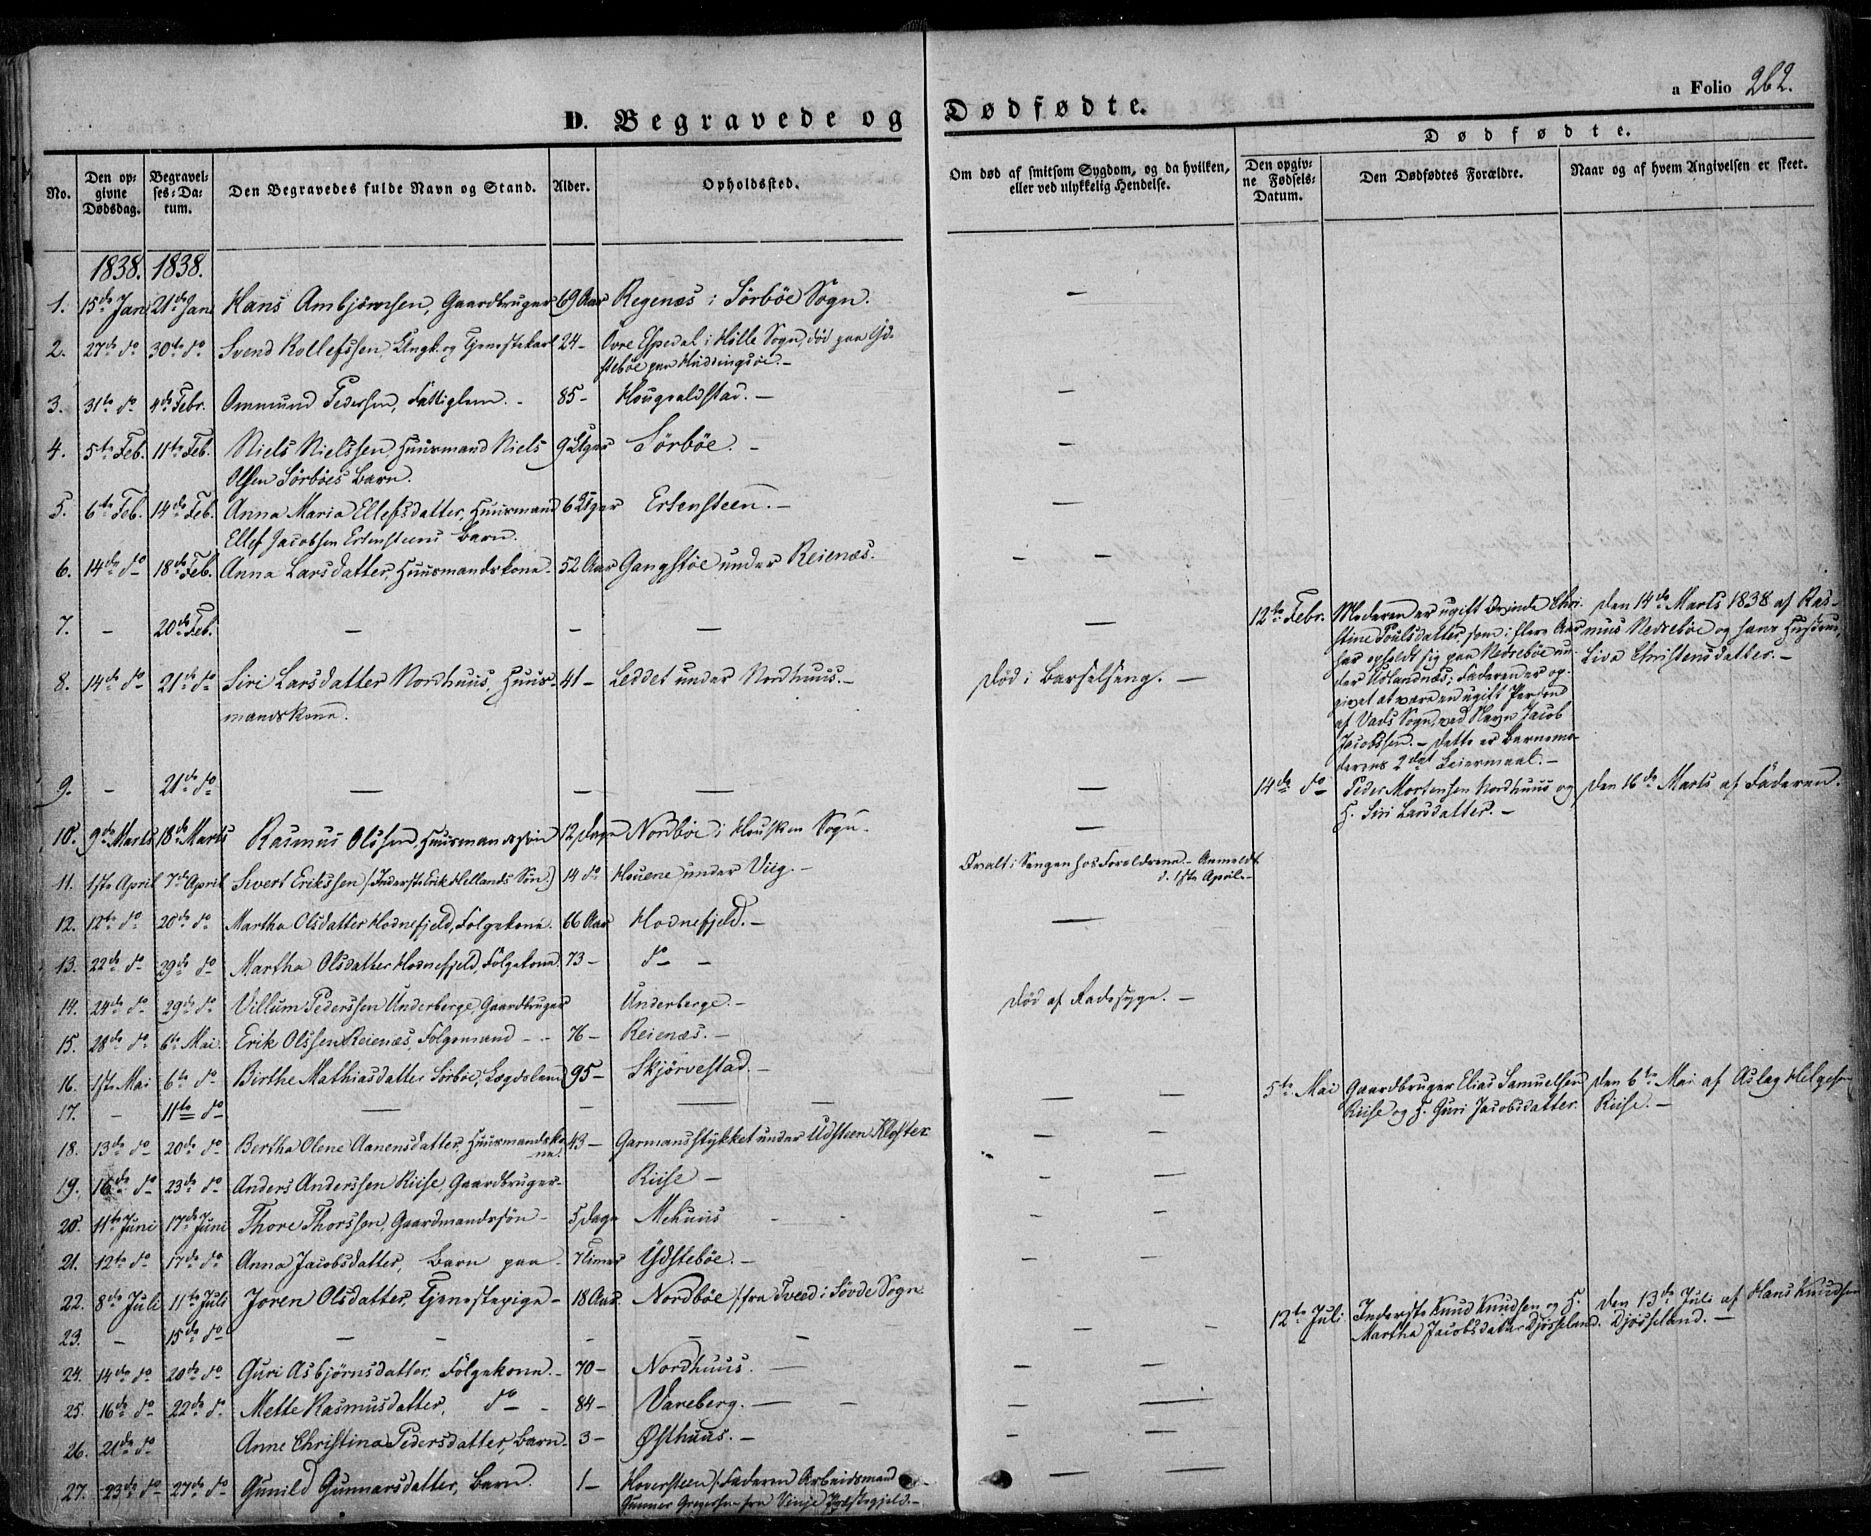 a Folio 262.
D. Begravede og Dødfødte.
Dødfødte.
No.
Den op-
givne
Dødsdag.
Begravel-
ses-Da-
tum.
Den Begravedes fulde Navn og Stand.
Alder.
Opholdssted.
Om død af smitsom Sygdom, og da hvilken,
eller ved ulykkelig Hendelse.
Den opgiv-
ne Fødsels-
Datum.
Den Dødfødtes Forældre.
Naar og af hvem Angivelsen er skeet.
1838. 1838.
1. 15de Jan 21de Jan Hans Ambjørnsen, Gaardbruger 69 Aar Regenæs i Sørbøe Sogn. —
2. 27de do 30te do Svend Rollefssen, Ungk. og Tjenestekarl 24 – Øvre Espedal i Hølle Sogn, død paa Yd-
stebøe paa Hidringsøe. –
3. 31te do 4de Febr. Ommund Pedersen, Fattiglem. – 85 – Hougvaldstad. – —
4. 5te Feb. 11te Feb. Niels Nielssen, Huusmand Niels 9 Uger Sørbøe. – —
Olsen Sørbøes Barn.
5. 6te Feb. 14de Feb. Anna Maria Ellefsdatter, Huusmand 6 Uger Ertensteen. – —
Ellef Jacobsen Ertensteens Barn.
6. 14de do 18de Feb. Anna Larsdatter, Huusmandskone – 52 Aar Gangstøe under Reienæs. — —
7. – 20de Feb. — — — — 12te Febr. Moderen er ugift Qvinde Chri- Den 14de Marts 1838 af Ras-
stine Poulsdatter, som i flere Aar mus Nedrebøe og hans Hustrue,
har opholdt sig paa Nedrebøe un- Liva Christensdatter. –
der Utlandnæs; Faderen er op-
givet at være en ugift Person
af Vads Sogn, ved Navn Jacob
Jacobssen. – Dette er Barnemo-
derens 2det Leiermaal. –
8. 14de do 21de do Siri Larsdatter Nordhuus, Huus- 41 – Leddet under Nordhuus. – Død i Barselseng. —
mandskone.
9. – 21de do — — — — 14de do Peder Mortensen Nordhuus og Den 16de Marts af Faderen.
H. Siri Larsdatter. –
10. 9de Marts 18de Marts Rasmus Olssen, Huusmandssøn 12 Dage Nordbøe i Housken Sogn. —
11. 1ste April 7de April Sivert Erikssen (Inderste Erik Hellands Søn) 14 do Houene under Viig. – Qvalt i Sengen hos Forældrene. – Anmeldt
d. 1ste April. –
12. 12te do 20de do Martha Olsdatter Hodnefjeld, Folgekone. 66 Aar Hodnefjeld. – —
13. 22de do 29de do Martha Olsdatter Hodnefjeld, Folgekone 73 – do –
14. 24de do 29de do Villum Pederssen Underberge, Gaardbruger Underberge. – Død af Radesyge. –
15. 28de do 6te Mai. Erik Olssen Reienæs, Folgemand – – 76 – Reienæs. –
16. 1ste Mai 6te do Birthe Mathiasdatter Sørbøe, Lægdslem 95 – Skjørvestad. –
17. – 11te do — — — — — 5te Mai Gaardbruger Elias Samuelsen Den 6te Mai af Aslag Helgesen
Riise og H. Guri Jacobsdatter. Riise. –
18. 13de do 20de do Bertha Olene Aanensdatter, Huusmandsko- 43 – Garmansstykket under Udsteen Kloster – —
ne.
19. 16de do 23de do Anders Anderssen Riise, Gaardbruger – Riise – – —
20. 11te Juni 17de Juni Thore Thorssen, Gaardmandssøn – 5 Dage Mehuus – – – —
21. 12te do 17de do Anna Jacobsdatter, Barn paa – 7 Timer Ydstebøe. – – —
22. 8de Juli 11te Juli Joren Olsdatter, Tjenestepige – 18 Aar. Nordbøe /: fra Tveed i Søvde Sogn. – —
23. – 15de do — — – – – — – 12te Juli. Inderste Knud Knudsen og H. Den 13de Juli af Hans Knudsen
Martha Jacobsdatter Djøsseland. Djøsseland. –
24. 14de do 20de do Guri Asbjørnsdatter, Folgekone. – 70 – Nordhuus. — – —
25. 16de do 22de do Mette Rasmusdatter, do – – 84 – Vareberg. — – – —
26. 21de do Anne Christina Pedersdatter, Barn – 3 – Østhuus. – – —
27. 23de do 27de do Gunild Gunnarsdatter, Barn. 1 – Hoversteen /: Faderen Arbeidsmand – — —
Gunner Gregersen fra Vinje Præstegjeld. –